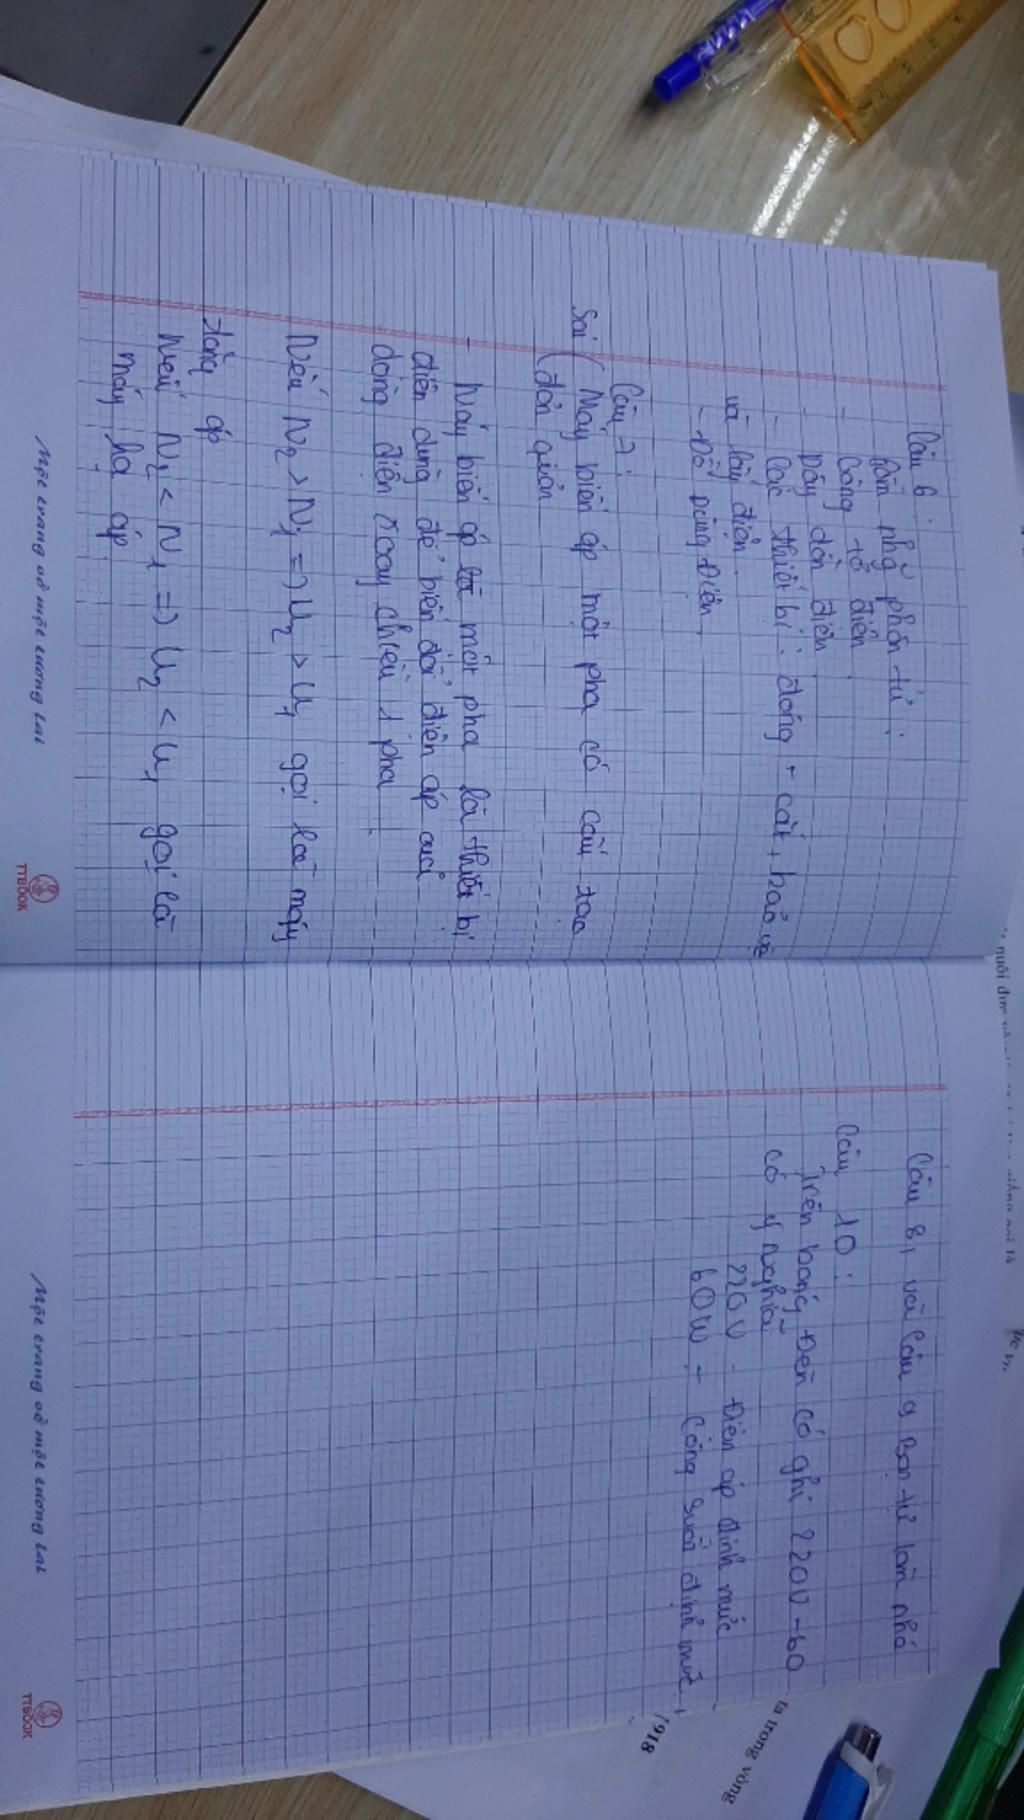 Câu 6:
Gồm những phần tử:
- Công tơ điện
- Dây dẫn điện
- Các thiết bị: đóng - cắt, bảo vệ
và lấy điện.
- Đồ dùng điện
Câu 7:
Sai (Máy biến áp một pha có cấu tạo
đơn giản
- Máy biến áp một pha là thiết bị
điện dùng để biến đổi điện áp của
dòng điện xoay chiều 1 pha
Nếu N2 > N1 => U2 > U1 gọi là máy
tăng áp
Nếu N2 < N1 => U2 < U1 gọi là
máy hạ áp
Một trang vở một tương lai
TTBOOK
Câu 8, và Câu 9 Bạn tự làm nhé
Câu 10:
Trên bóng đèn có ghi 220V - 60
có ý nghĩa
220V - Điện áp định mức
60W - Công suất định mức
Một trang vở một tương lai
TTBOOK
ta trong vòng
1918